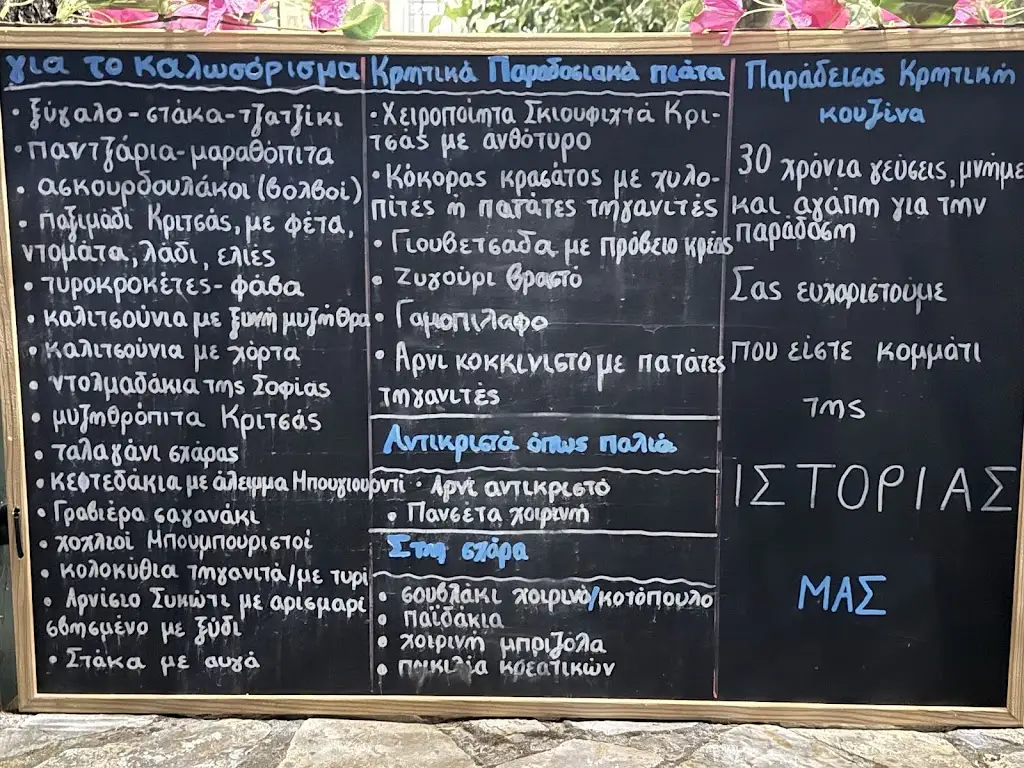 για το καλωσόρισμα
• ξύγαλο - στάκα - τζατζίκι
• παντζάρια - μαραθόπιτα
• ασκουρδουλάκοι (βολβοί)
• παξιμάδι Κριτσάς, με φέτα,
ντομάτα, λάδι, ελιές
• τυροκροκέτες - φάβα
• καλιτσούνια με ξυνή μυζήθρα
• καλιτσούνια με χόρτα
• ντολμαδάκια της Σοφίας
• μυζηθρόπιτα Κριτσάς
• ταλαγάνι σχάρας
• κεφτεδάκια με άλειμμα Μπουγιουρντί
• Γραβιέρα σαγανάκι
• χοχλιοί Μπουμπουριστοί
• κολοκύθια τηγανιτά/με τυρί
• Αρνίσιο Συκώτι με αρισμαρί
σβησμένο με ξύδι
• Στάκα με αυγά
Κρητικά Παραδοσιακά πιάτα
• Χειροποίητα Σκιουφιχτά Κρι-
τσάς με ανθότυρο
• Κόκορας κρασάτος με χυλο-
πίτες ή πατάτες τηγανιτές
• Γιουβετσαδα με πρόβειο κρέας
• Ζυγούρι βραστό
• Γαμοπιλαφο
• Αρνι κοκκινιστο με πατάτες
τηγανιτές
Αντικριστά όπως παλιά
• Αρνί αντικριστό
• Πανσέτα χοιρινή
Στη σχάρα
• σουβλάκι χοιρινό/κοτόπουλο
• παϊδάκια
• χοιρινή μπριζόλα
• ποικιλία κρεατικών
Παράδεισος Κρητική
κουζίνα
30 χρόνια γεύσεις, μνήμε
και αγάπη για την
παράδοση
Σας ευχαριστούμε
που είστε κομμάτι
της
ΙΣΤΟΡΙΑΣ
ΜΑΣ